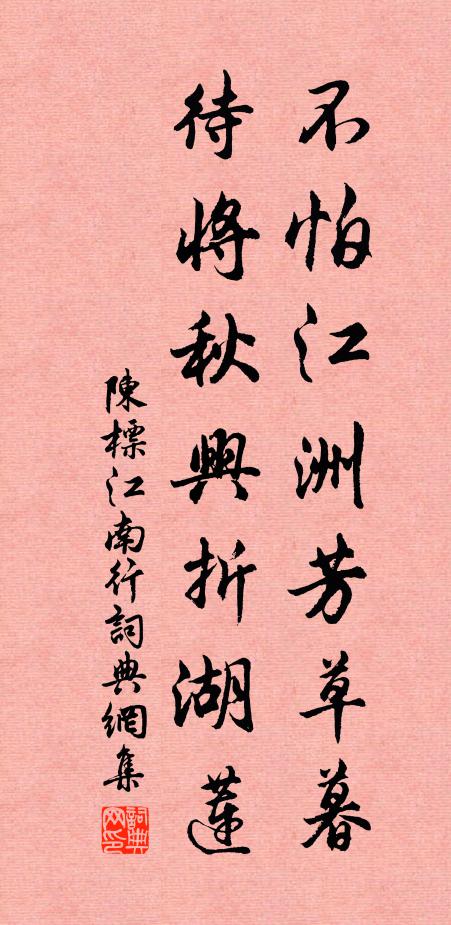 不怕江洲芳草暮
待將秋興折湖蓮
陳標江南行詞典網集
詞典网印